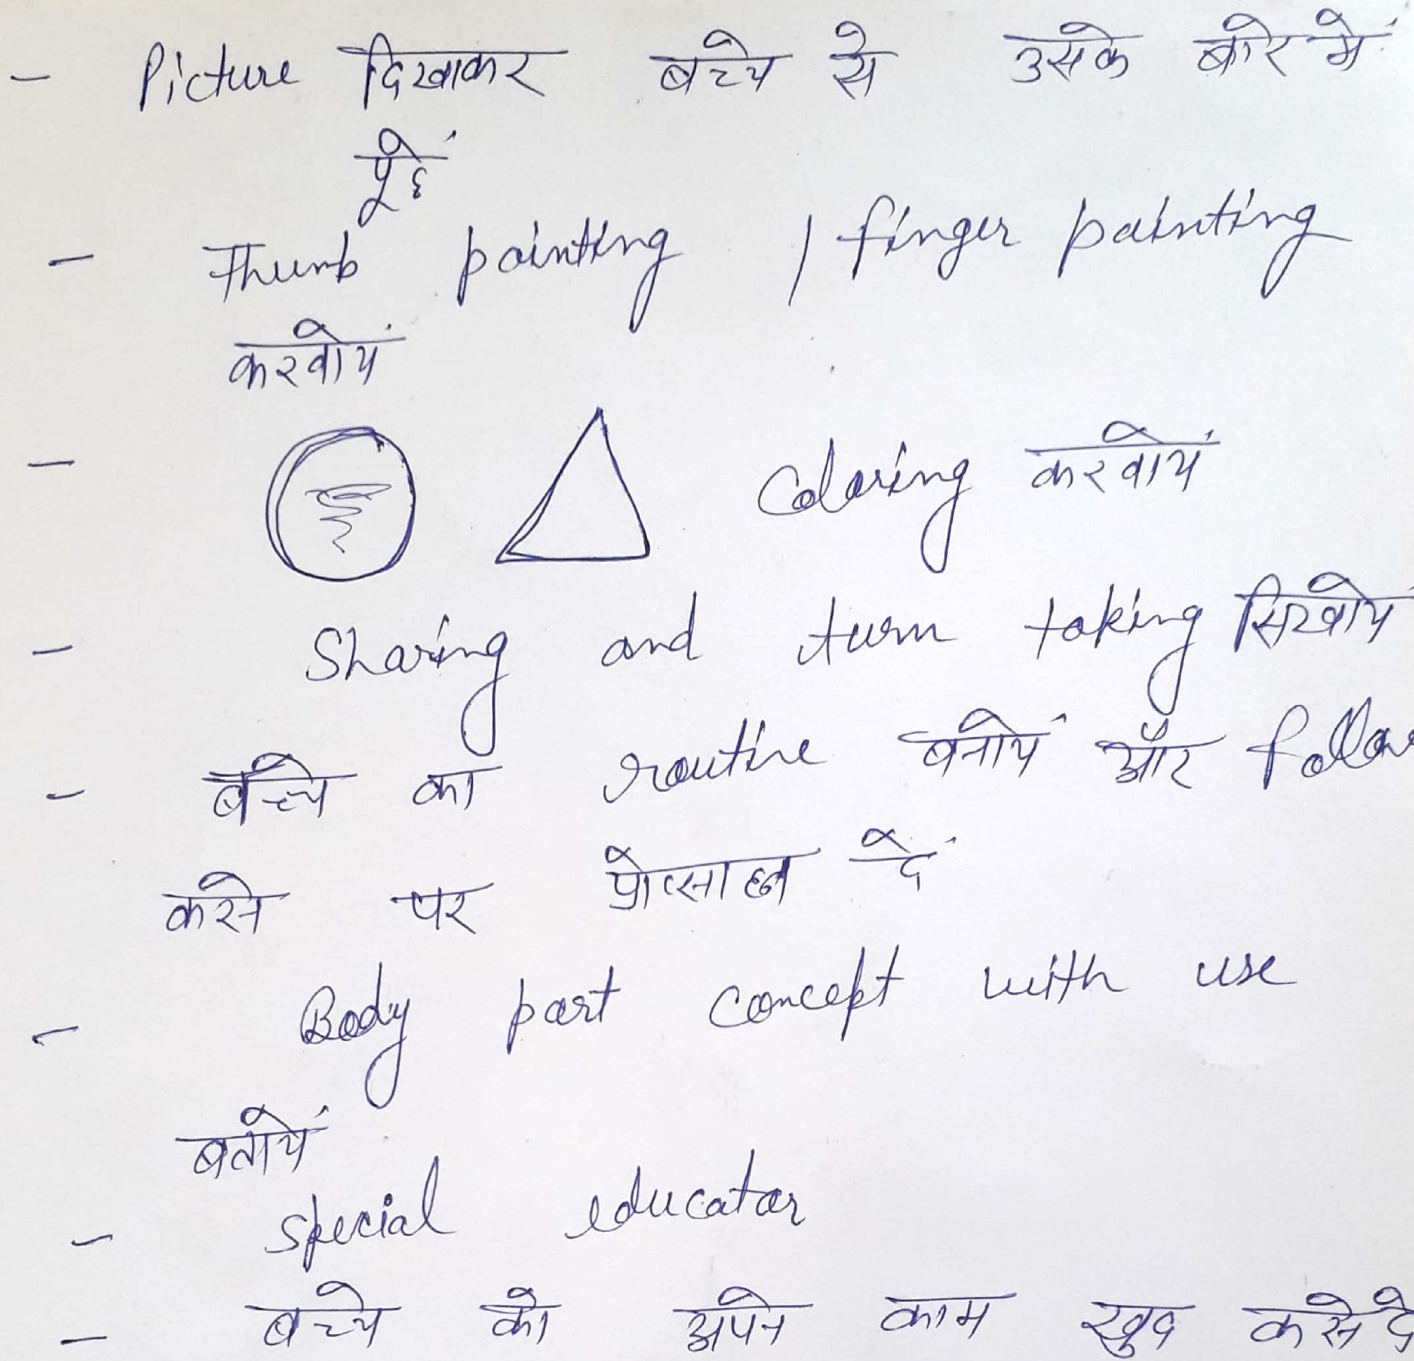 - Picture दिखाकर बच्चे से उसके बारे में
पूछें
- Thumb painting / finger painting
करवायें
- Coloring करवायें
- Sharing and turn taking सिखायें
- बच्चे का routine बनायें और follow
करने पर प्रोत्साहन दें
- Body part concept with use
बतायें
- Special educator
- बच्चे को अपने काम खुद करने दे